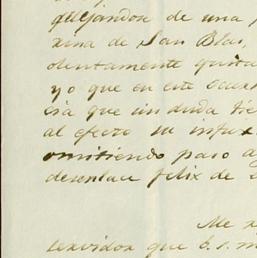 quejandon de una
xina de San Blas,
olentamente quita
yo que en este
cia que sin duda tie
al efecto su influ
omitiendo paso a
desenlace felix de
Me
servidor que b. s. m